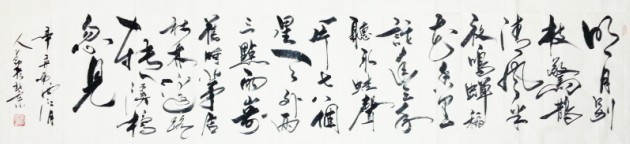 明月别
枝驚鵲
清風半
夜鳴蟬稻
花香里
説豐年
聽取蛙聲
一片七八個
星天外兩
三點雨山前
舊時茅店
社林邊路
轉溪橋
忽見
辛棄疾西江月